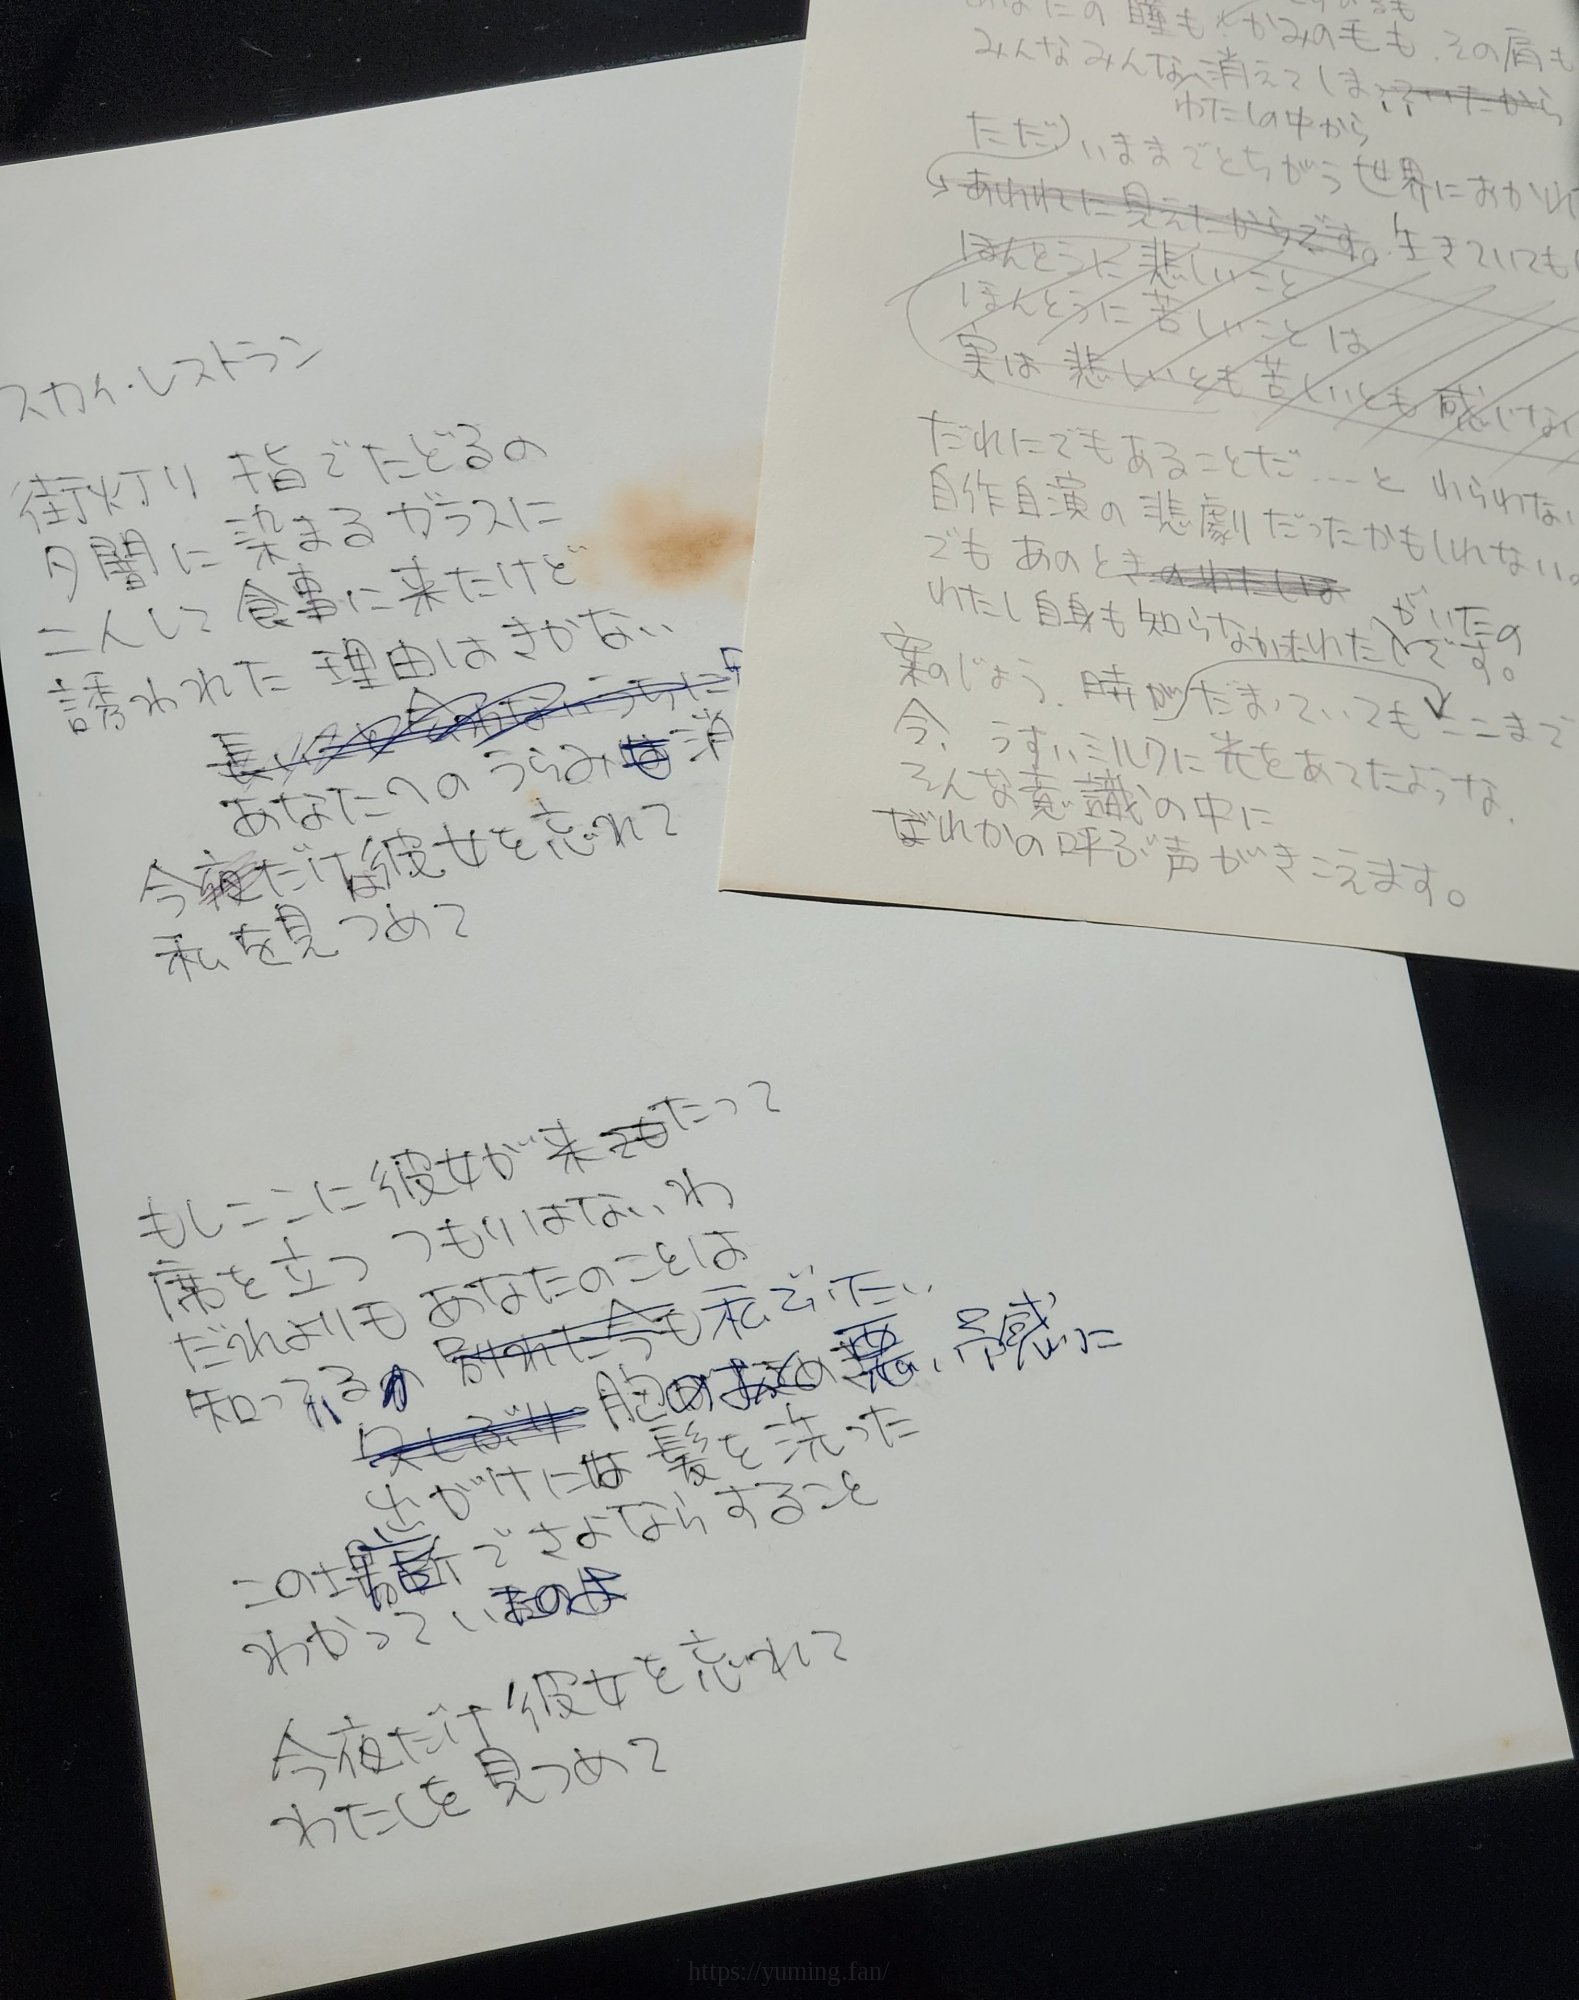 スカイ・レストラン
街灯り 指でたどるの
夕闇に染まるガラスに
二人して食事に来たけど
誘われた理由はきかない
長い
あなたへのうらみも消
今夜だけは彼女を忘れて
私を見つめて
もしここに彼女が来てもたって
席を立つつもりはないわ
だれよりもあなたのことは
知ってるの 別れた今も 私でいたい
久しぶり 胸の の悪い予感に
出がけには髪を洗った
この場所でさよならすること
わかっていたのよ
今夜だけ彼女を忘れて
わたしを見つめて
あなたの瞳も かみの毛も、その肩も
みんなみんな消えてしまっていたから
わたしの中から
ただ、いままでとちがう世界におかれ
あわれに見えたからです。生きていても
ほんとうに悲しいこと
ほんとうに苦しいことは
実は 悲しいとも苦しいとも感じない
だれにでもあることだ……と
自作自演の悲劇だったかもしれない。
でも あのときのわたしは
がいたの
わたし自身も知らなかったわたしです。
案のじょう、時がだまっていてもここまで
今、うすいミルクに光をあてたような、
そんな意識の中に
だれかの呼ぶ声がきこえます。
https://yuming.fan/